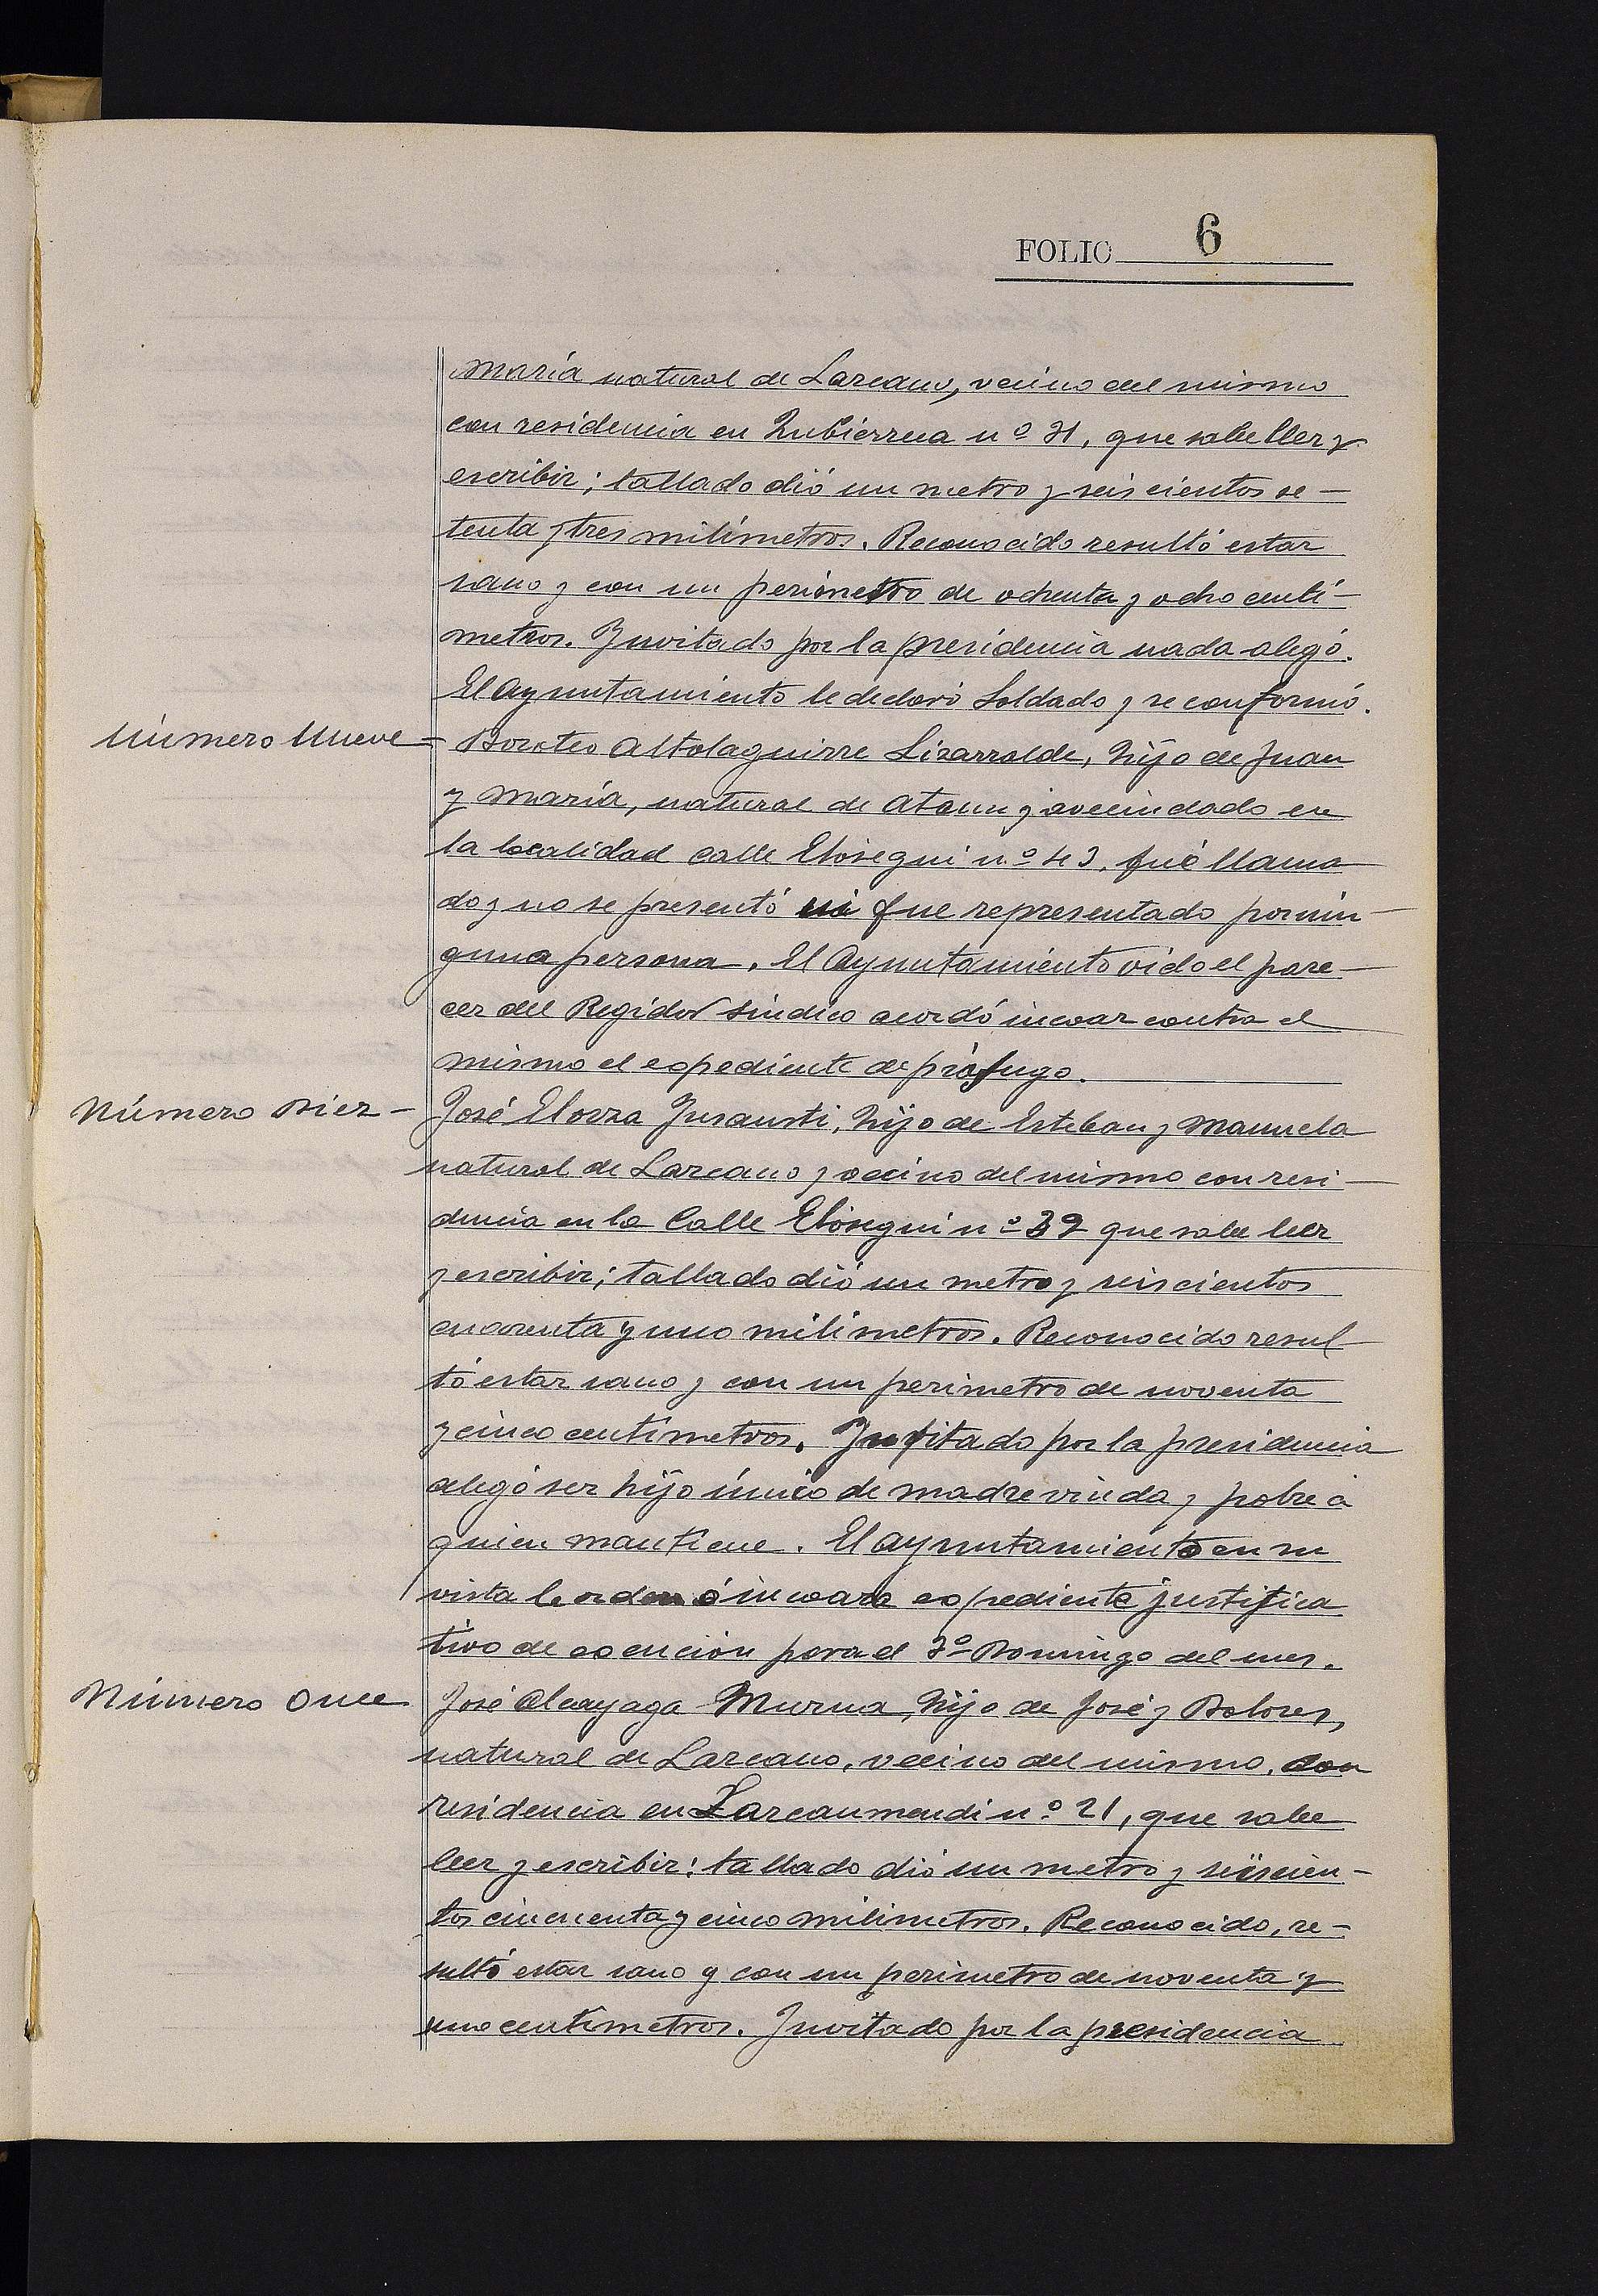 FOLIO 6
María natural de Lazcano, vecino del mismo
con residencia en Zubierrea nº 31, que sabe ller y
escribir; tallado dió un metro y seiscientos se-
tenta y tres milímetros. Reconocido resultó estar
sano y con un perímetro de ochenta y ocho centí-
metros. Invitado por la presidencia nada alegó.
El Ayuntamiento le declaró Soldado y se conformó.
Número Nueve = Doroteo Altolaguirre Lizarralde, hijo de Juan
y María, natural de Ataun y avecindado en
la localidad calle Elósegui nº 43, fué llama
do y no se presentó ni fue representado por nin-
guna persona. El Ayuntamiento oido el pare-
cer del Regidor Síndico acordó incoar contra el
mismo el expediente de prófugo.
Número Diez - José Elorza Insausti, hijo de Esteban y Manuela
natural de Lazcano y vecino del mismo con resi-
dencia en la Calle Elósegui nº 39 que sabe leer
y escribir; tallado dió un metro y seiscientos
cuarenta y uno milímetros. Reconocido resul-
tó estar sano y con un perimetro de noventa
y cinco centímetros. Invitado por la presidencia
alegó ser hijo único de madre viuda y pobre á
quien mantiene. El ayuntamiento en su
vista le ordenó incoara expediente justifica
tivo de exención para el 3º Domingo del mes.
Número Once José Alcayaga Murua, hijo de José y Dolores,
natural de Lazcano, vecino del mismo, con
residencia en Lazcaumendi nº 21, que sabe
leer y escribir: tallado dió un metro y seiscien-
tos cincuenta y cinco milimetros. Reconocido, re-
sultó estar sano y con un perimetro de noventa y
uno centímetros. Invitado por la presidencia